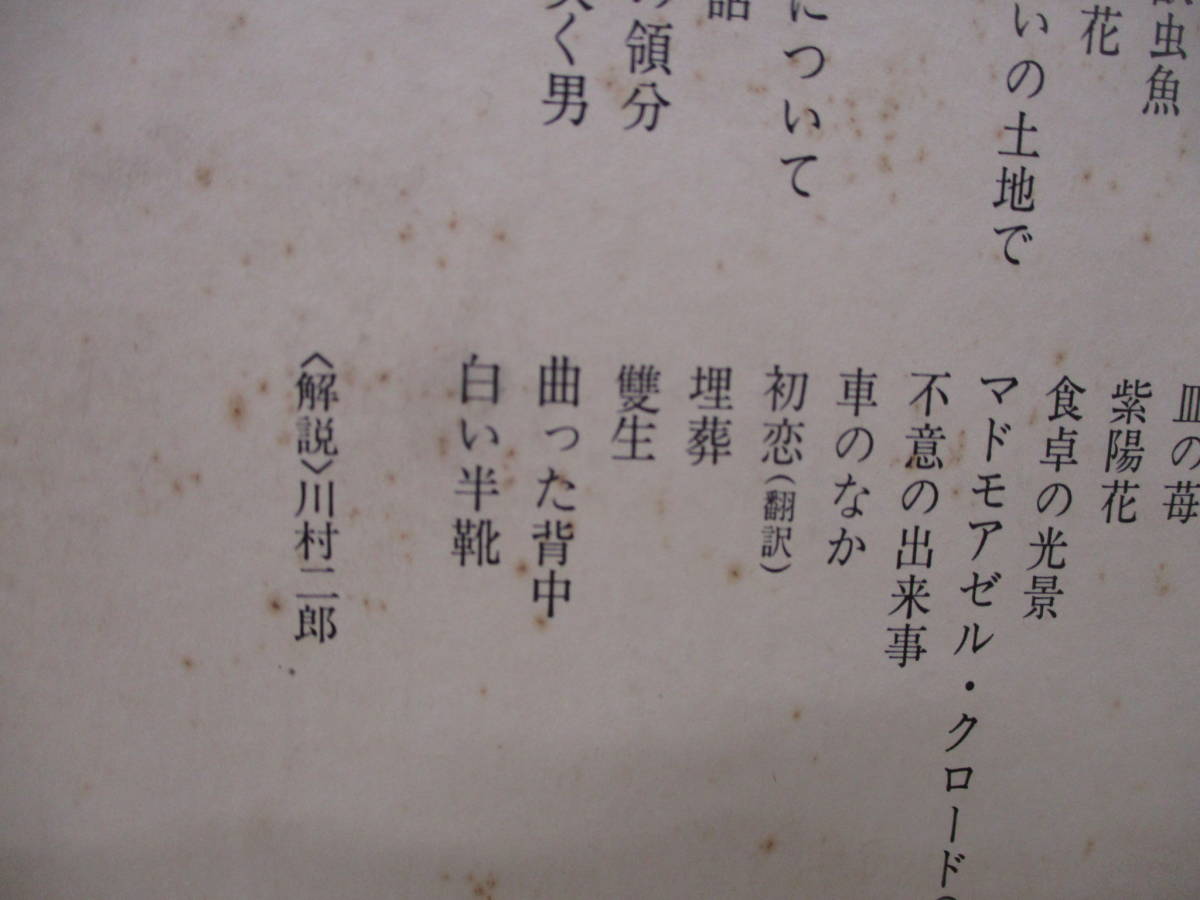 虫魚
花
いの土地で
について
話
領分
く男
皿の苺
紫陽花
食卓の光景
マドモアゼル・クロード
不意の出来事
車のなか
初恋(翻訳)
埋葬
雙生
曲った背中
白い半靴
〈解説〉川村二郎